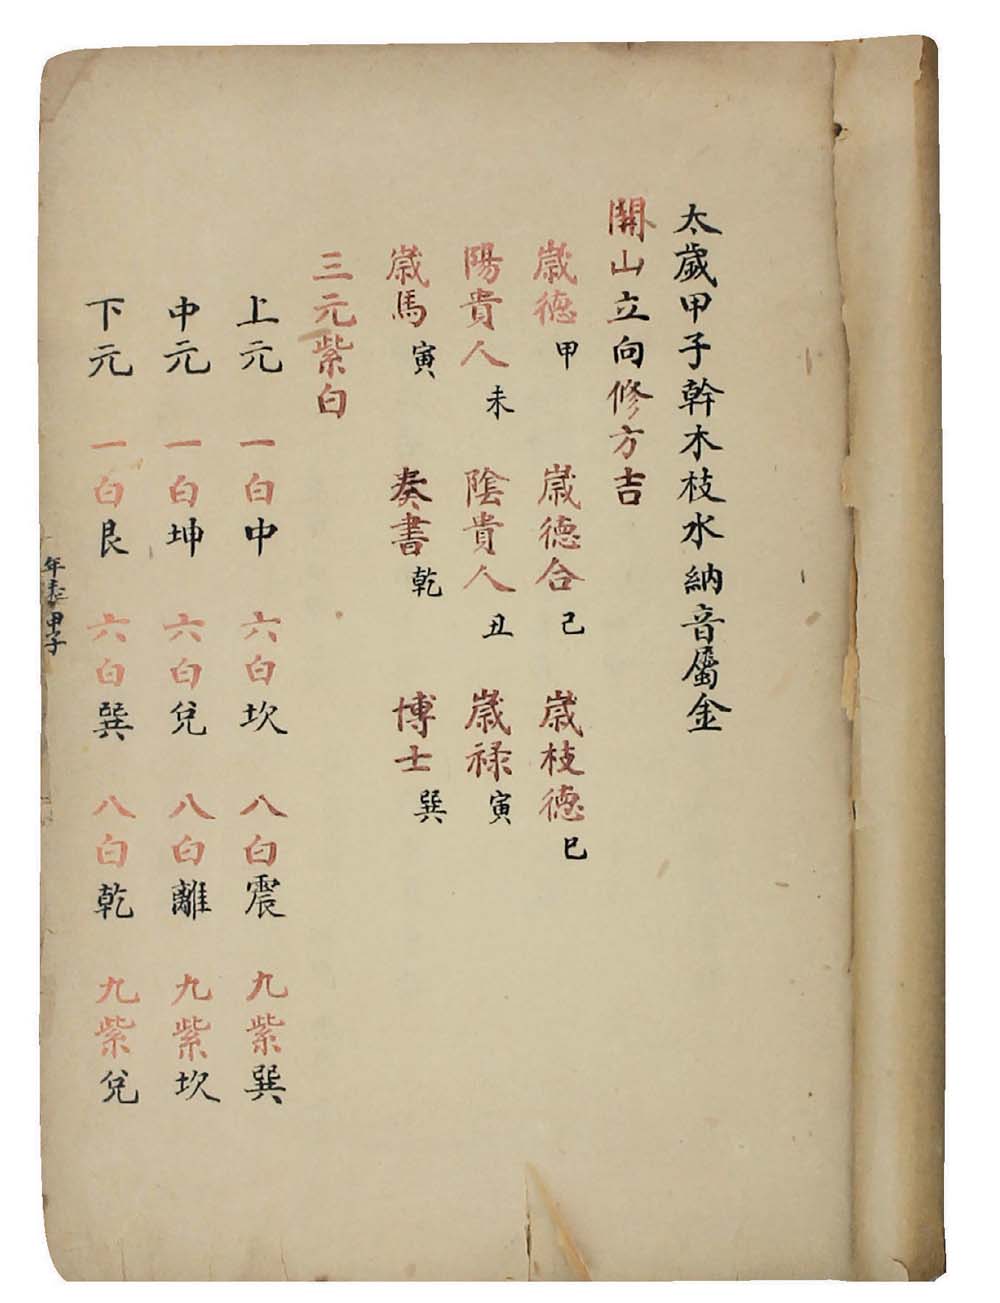 太歲甲子幹木枝水納音屬金
開山立向修方吉
歲德甲 歲德合己 歲枝德巳
陽貴人未 陰貴人丑 歲祿寅
歲馬寅 奏書乾 博士巽
三元紫白
上元 一白中 六白坎 八白震 九紫巽
中元 一白坤 六白兌 八白離 九紫坎
下元 一白艮 六白巽 八白乾 九紫兌
年表 甲子